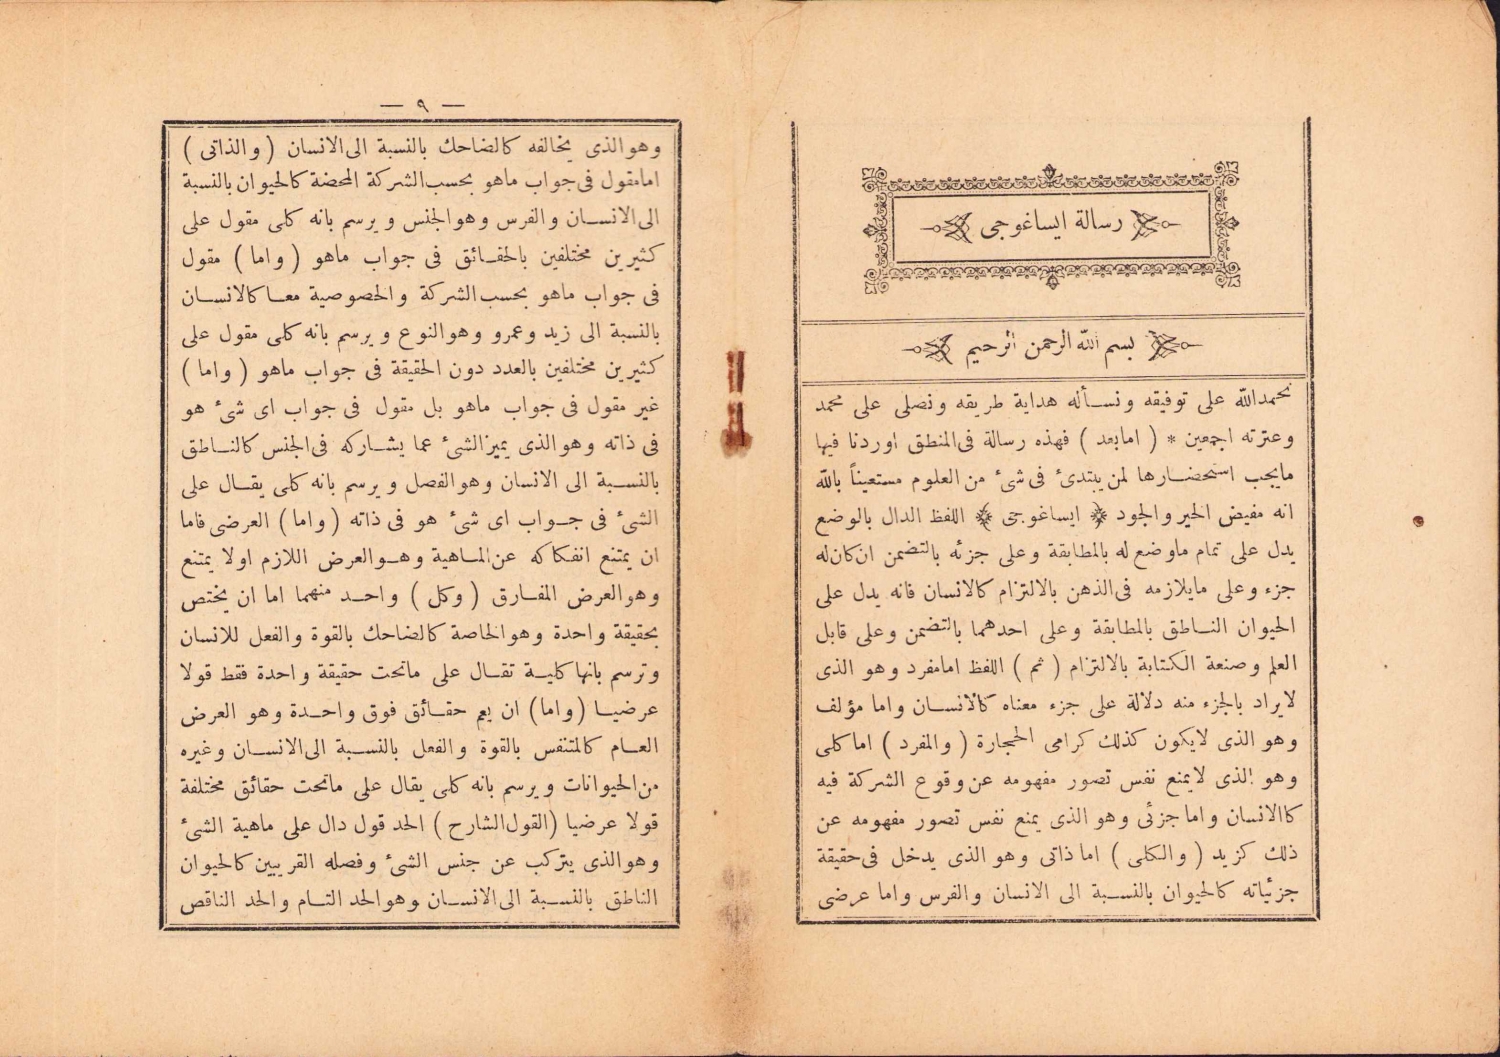 رسالة ايساغوجى
بسم الله الرحمن الرحيم
نحمدالله على توفيقه ونسأله هداية طريقه ونصلى على محمد
وعترته اجمعين * (امابعد) فهذه رسالة فى المنطق اوردنا فيها
مايجب استحضارها لمن يبتدئ فى شئ من العلوم مستعيناً بالله
انه مفيض الخير والجود ﴿ ايساغوجى ﴾ اللفظ الدال بالوضع
يدل على تمام ماوضع له بالمطابقة وعلى جزئه بالتضمن ان كان له
جزء وعلى مايلازمه فى الذهن بالالتزام كالانسان فانه يدل على
الحيوان الناطق بالمطابقة وعلى احدهما بالتضمن وعلى قابل
العلم وصنعة الكتابة بالالتزام (ثم) اللفظ امامفرد وهو الذى
لايراد بالجزء منه دلالة على جزء معناه كالانسان واما مؤلف
وهو الذى لايكون كذلك كرامى الحجارة (والمفرد) اما كلى
وهو الذى لايمنع نفس تصور مفهومه عن وقوع الشركة فيه
كالانسان واما جزئى وهو الذى يمنع نفس تصور مفهومه عن
ذلك كزيد (والكلى) اما ذاتى وهو الذى يدخل فى حقيقة
جزئياته كالحيوان بالنسبة الى الانسان والفرس واما عرضى
— ٩ —
وهوالذى يخالفه كالضاحك بالنسبة الى الانسان (والذاتى)
امامقول فى جواب ماهو بحسب الشركة المحضة كالحيوان بالنسبة
الى الانسان والفرس وهوالجنس ويرسم بانه كلى مقول على
كثيرين مختلفين بالحقائق فى جواب ماهو (واما) مقول
فى جواب ماهو بحسب الشركة والخصوصية معا كالانسان
بالنسبة الى زيد وعمرو وهوالنوع ويرسم بانه كلى مقول على
كثيرين مختلفين بالعدد دون الحقيقة فى جواب ماهو (واما)
غير مقول فى جواب ماهو بل مقول فى جواب اى شئ هو
فى ذاته وهوالذى يميزالشئ عما يشاركه فى الجنس كالناطق
بالنسبة الى الانسان وهوالفصل ويرسم بانه كلى يقال على
الشئ فى جواب اى شئ هو فى ذاته (واما) العرضى فاما
ان يمتنع انفكاكه عن الماهية وهوالعرض اللازم اولا يمتنع
وهوالعرض المفارق (وكل) واحد منهما اما ان يختص
بحقيقة واحدة وهوالخاصة كالضاحك بالقوة والفعل للانسان
وترسم بانها كلية تقال على ماتحت حقيقة واحدة فقط قولا
عرضيا (واما) ان يعم حقائق فوق واحدة وهو العرض
العام كالمتنفس بالقوة والفعل بالنسبة الى الانسان وغيره
من الحيوانات ويرسم بانه كلى يقال على ماتحت حقائق مختلفة
قولا عرضيا (القول الشارح) الحد قول دال على ماهية الشئ
وهوالذى يتركب عن جنس الشئ وفصله القريبين كالحيوان
الناطق بالنسبة الى الانسان وهوالحد التام والحد الناقص